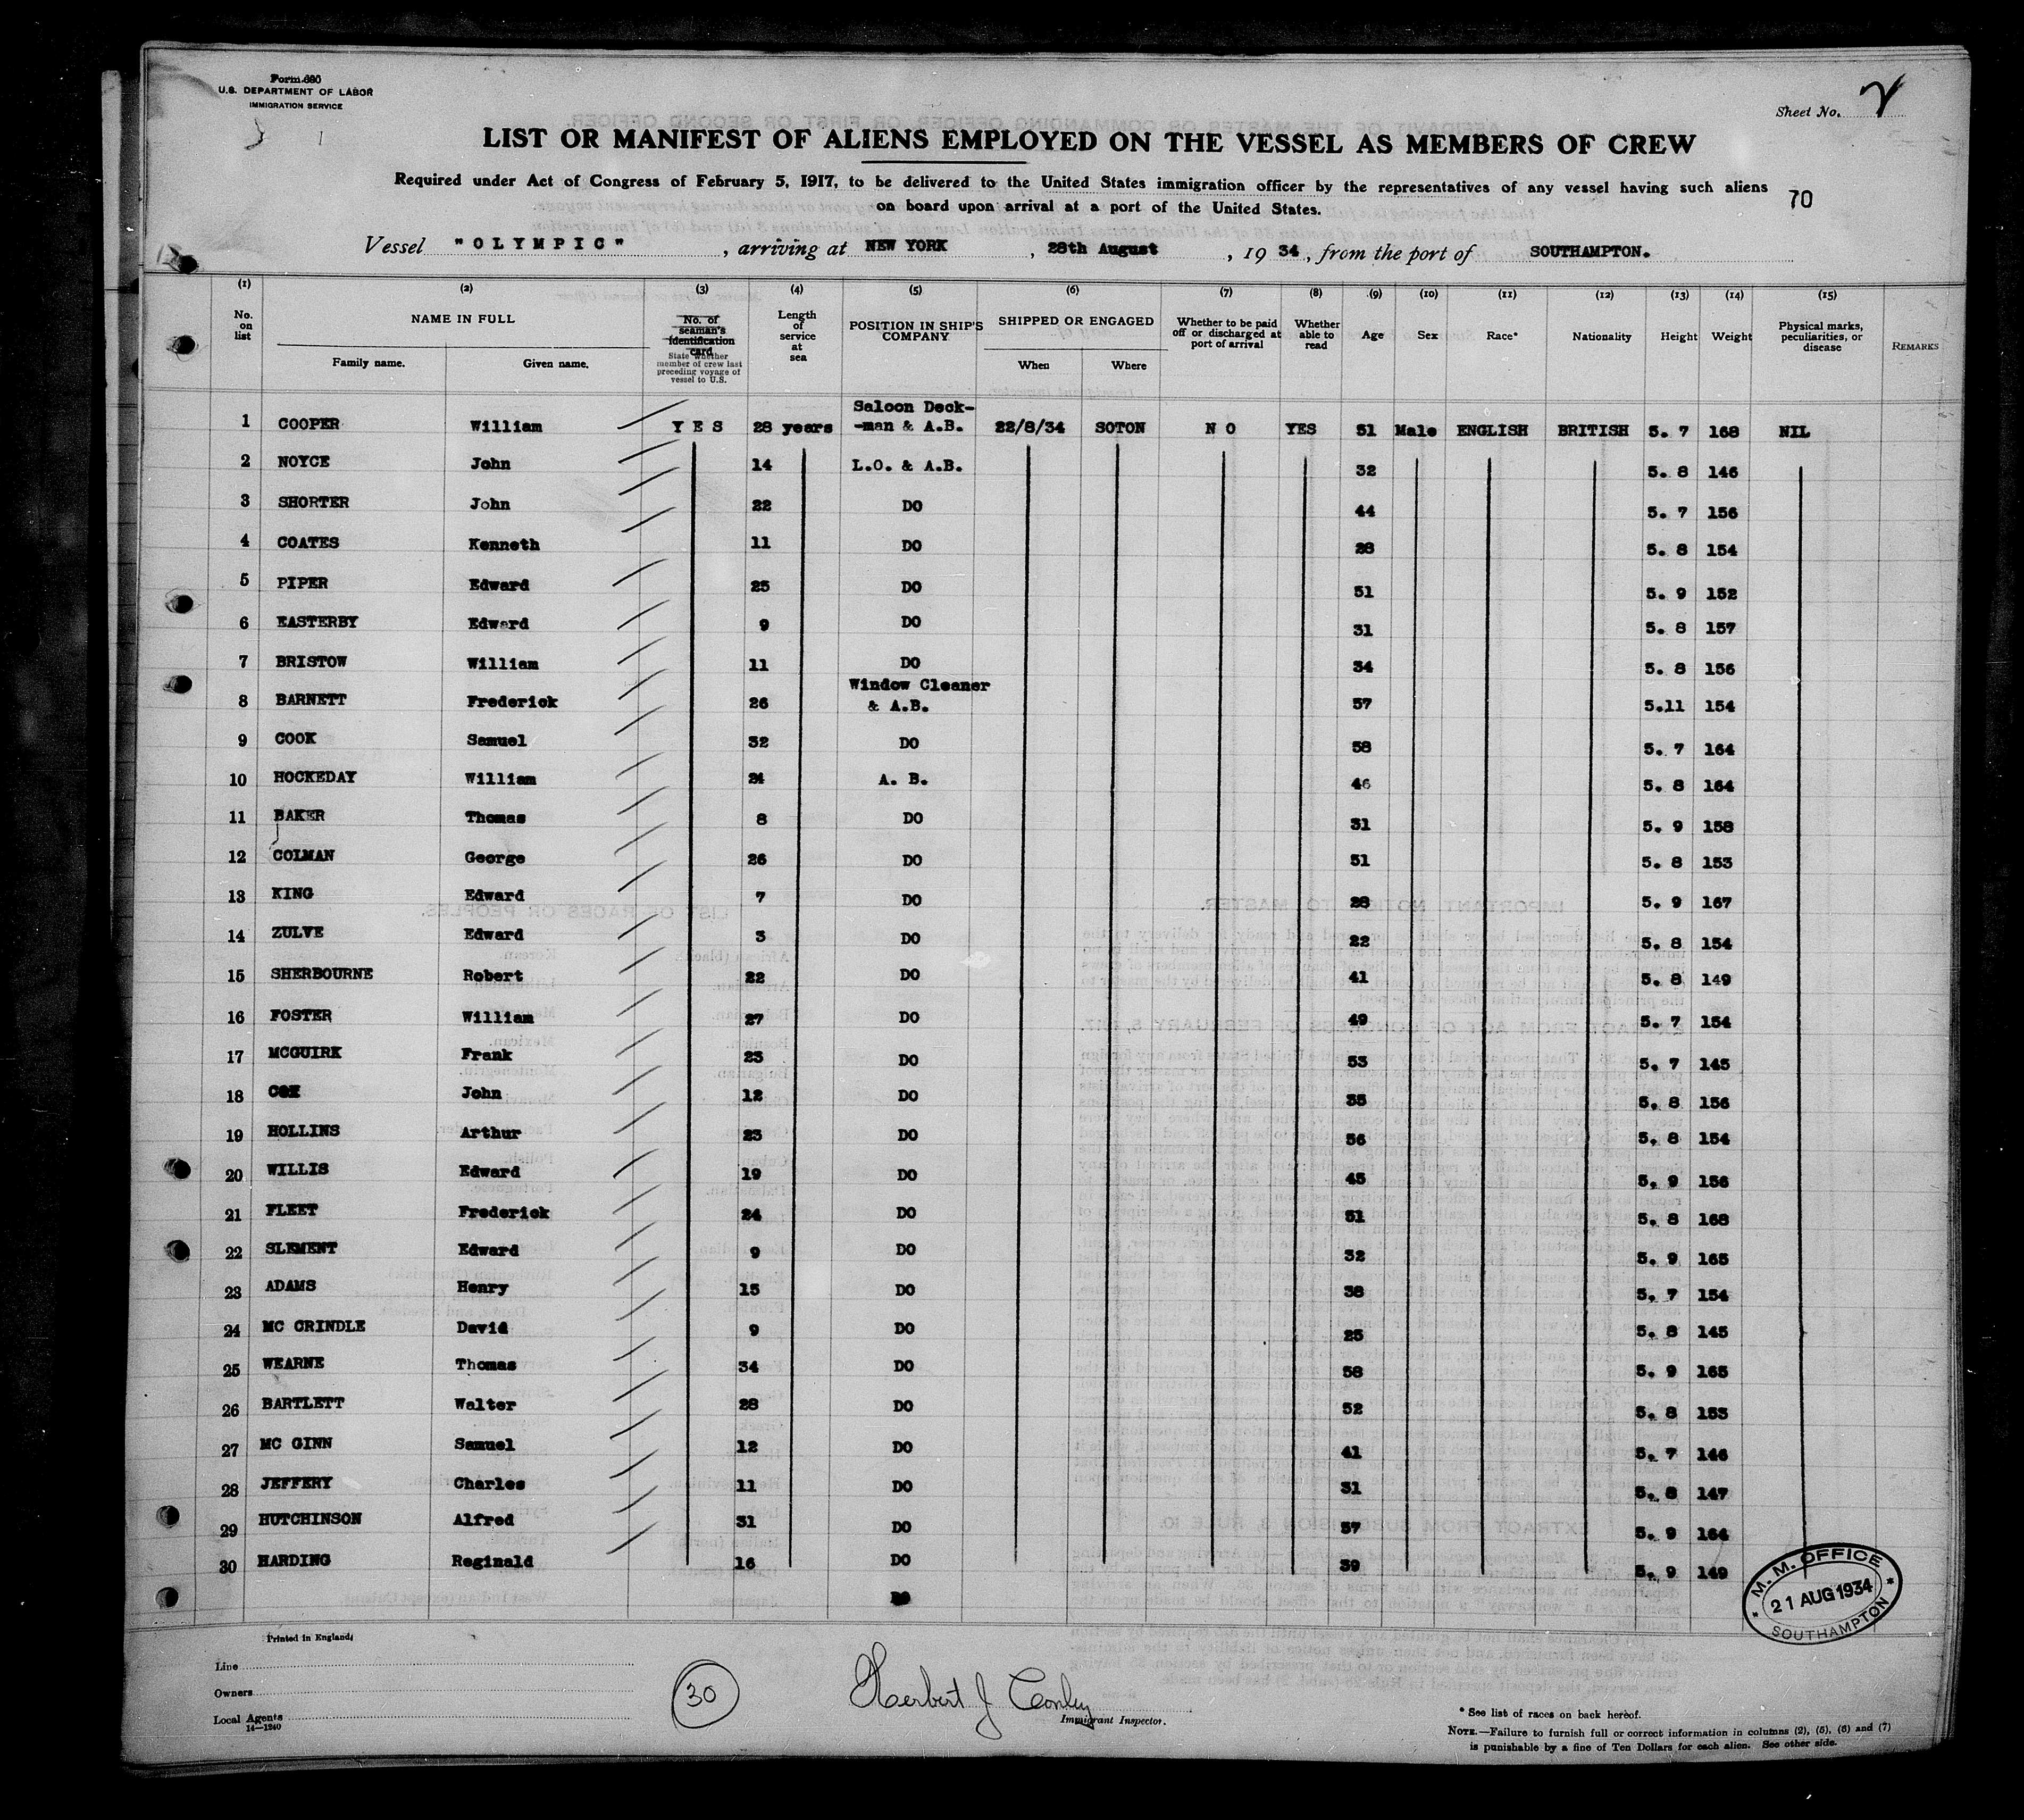 Form 680
U.S. DEPARTMENT OF LABOR
IMMIGRATION SERVICE
Sheet No. 2
LIST OR MANIFEST OF ALIENS EMPLOYED ON THE VESSEL AS MEMBERS OF CREW
Required under Act of Congress of February 5, 1917, to be delivered to the United States immigration officer by the representatives of any vessel having such aliens
on board upon arrival at a port of the United States.
70
Vessel "OLYMPIC", arriving at NEW YORK, 28th August, 1934, from the port of SOUTHAMPTON.
(1) (2) (3) (4) (5) (6) (7) (8) (9) (10) (11) (12) (13) (14) (15)
No. on list
NAME IN FULL
Family name. Given name.
No. of seaman's identification card
State whether member of crew last preceding voyage of vessel to U.S.
Length of service at sea
POSITION IN SHIP'S COMPANY
SHIPPED OR ENGAGED
When Where
Whether to be paid off or discharged at port of arrival
Whether able to read
Age
Sex
Race*
Nationality
Height
Weight
Physical marks, peculiarities, or disease
REMARKS
1 COOPER William YES 28 years Saloon Deck--man & A.B. 22/8/34 SOTON NO YES 51 Male ENGLISH BRITISH 5. 7 168 NIL
2 NOYCE John 14 L.O. & A.B. 32 5. 8 146
3 SHORTER John 22 DO 44 5. 7 156
4 COATES Kenneth 11 DO 28 5. 8 154
5 PIPER Edward 25 DO 51 5. 9 152
6 EASTERBY Edward 9 DO 31 5. 8 157
7 BRISTOW William 11 DO 34 5. 8 156
8 BARNETT Frederick 26 Window Cleaner & A.B. 57 5.11 154
9 COOK Samuel 32 DO 58 5. 7 164
10 HOCKEDAY William 24 A. B. 46 5. 8 164
11 BAKER Thomas 8 DO 31 5. 9 158
12 COLMAN George 26 DO 51 5. 8 153
13 KING Edward 7 DO 28 5. 9 167
14 ZULVE Edward 3 DO 22 5. 8 154
15 SHERBOURNE Robert 22 DO 41 5. 8 149
16 FOSTER William 27 DO 49 5. 7 154
17 MCGUIRK Frank 23 DO 53 5. 7 145
18 COX John 12 DO 35 5. 8 156
19 HOLLINS Arthur 23 DO 56 5. 8 154
20 WILLIS Edward 19 DO 45 5. 9 156
21 FLEET Frederick 24 DO 51 5. 8 168
22 SLEMENT Edward 9 DO 32 5. 9 165
23 ADAMS Henry 15 DO 38 5. 7 154
24 MC CRINDLE David 9 DO 25 5. 8 145
25 WEARNE Thomas 34 DO 58 5. 9 165
26 BARTLETT Walter 28 DO 52 5. 8 153
27 MC GINN Samuel 12 DO 41 5. 7 146
28 JEFFERY Charles 11 DO 31 5. 8 147
29 HUTCHINSON Alfred 31 DO 57 5. 9 164
30 HARDING Reginald 16 DO 39 5. 9 149
M. M. OFFICE
21 AUG 1934
SOUTHAMPTON
Printed in England.
Line
Owners
Local Agents
14—1240
30
Herbert J Conley
Immigrant Inspector.
* See list of races on back hereof.
NOTE.—Failure to furnish full or correct information in columns (2), (5), (6) and (7)
is punishable by a fine of Ten Dollars for each alien. See other side.